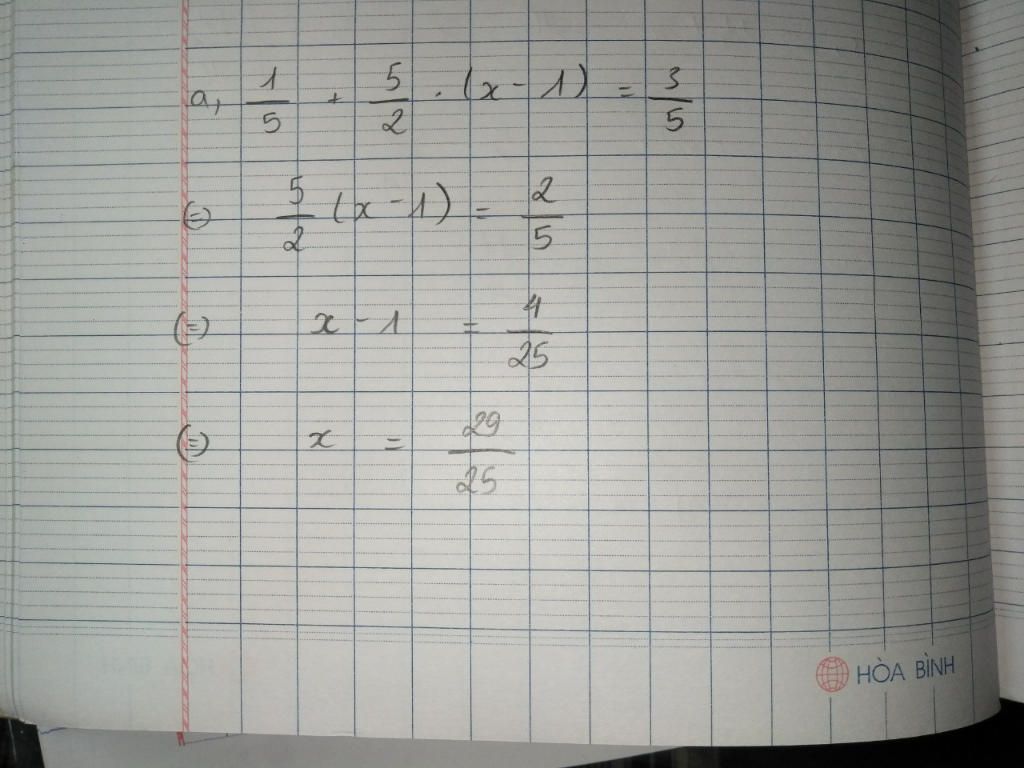 a, 1/5 + 5/2 . (x - 1) = 3/5
(=) 5/2 (x - 1) = 2/5
(=) x - 1 = 4/25
(=) x = 29/25
HÒA BÌNH